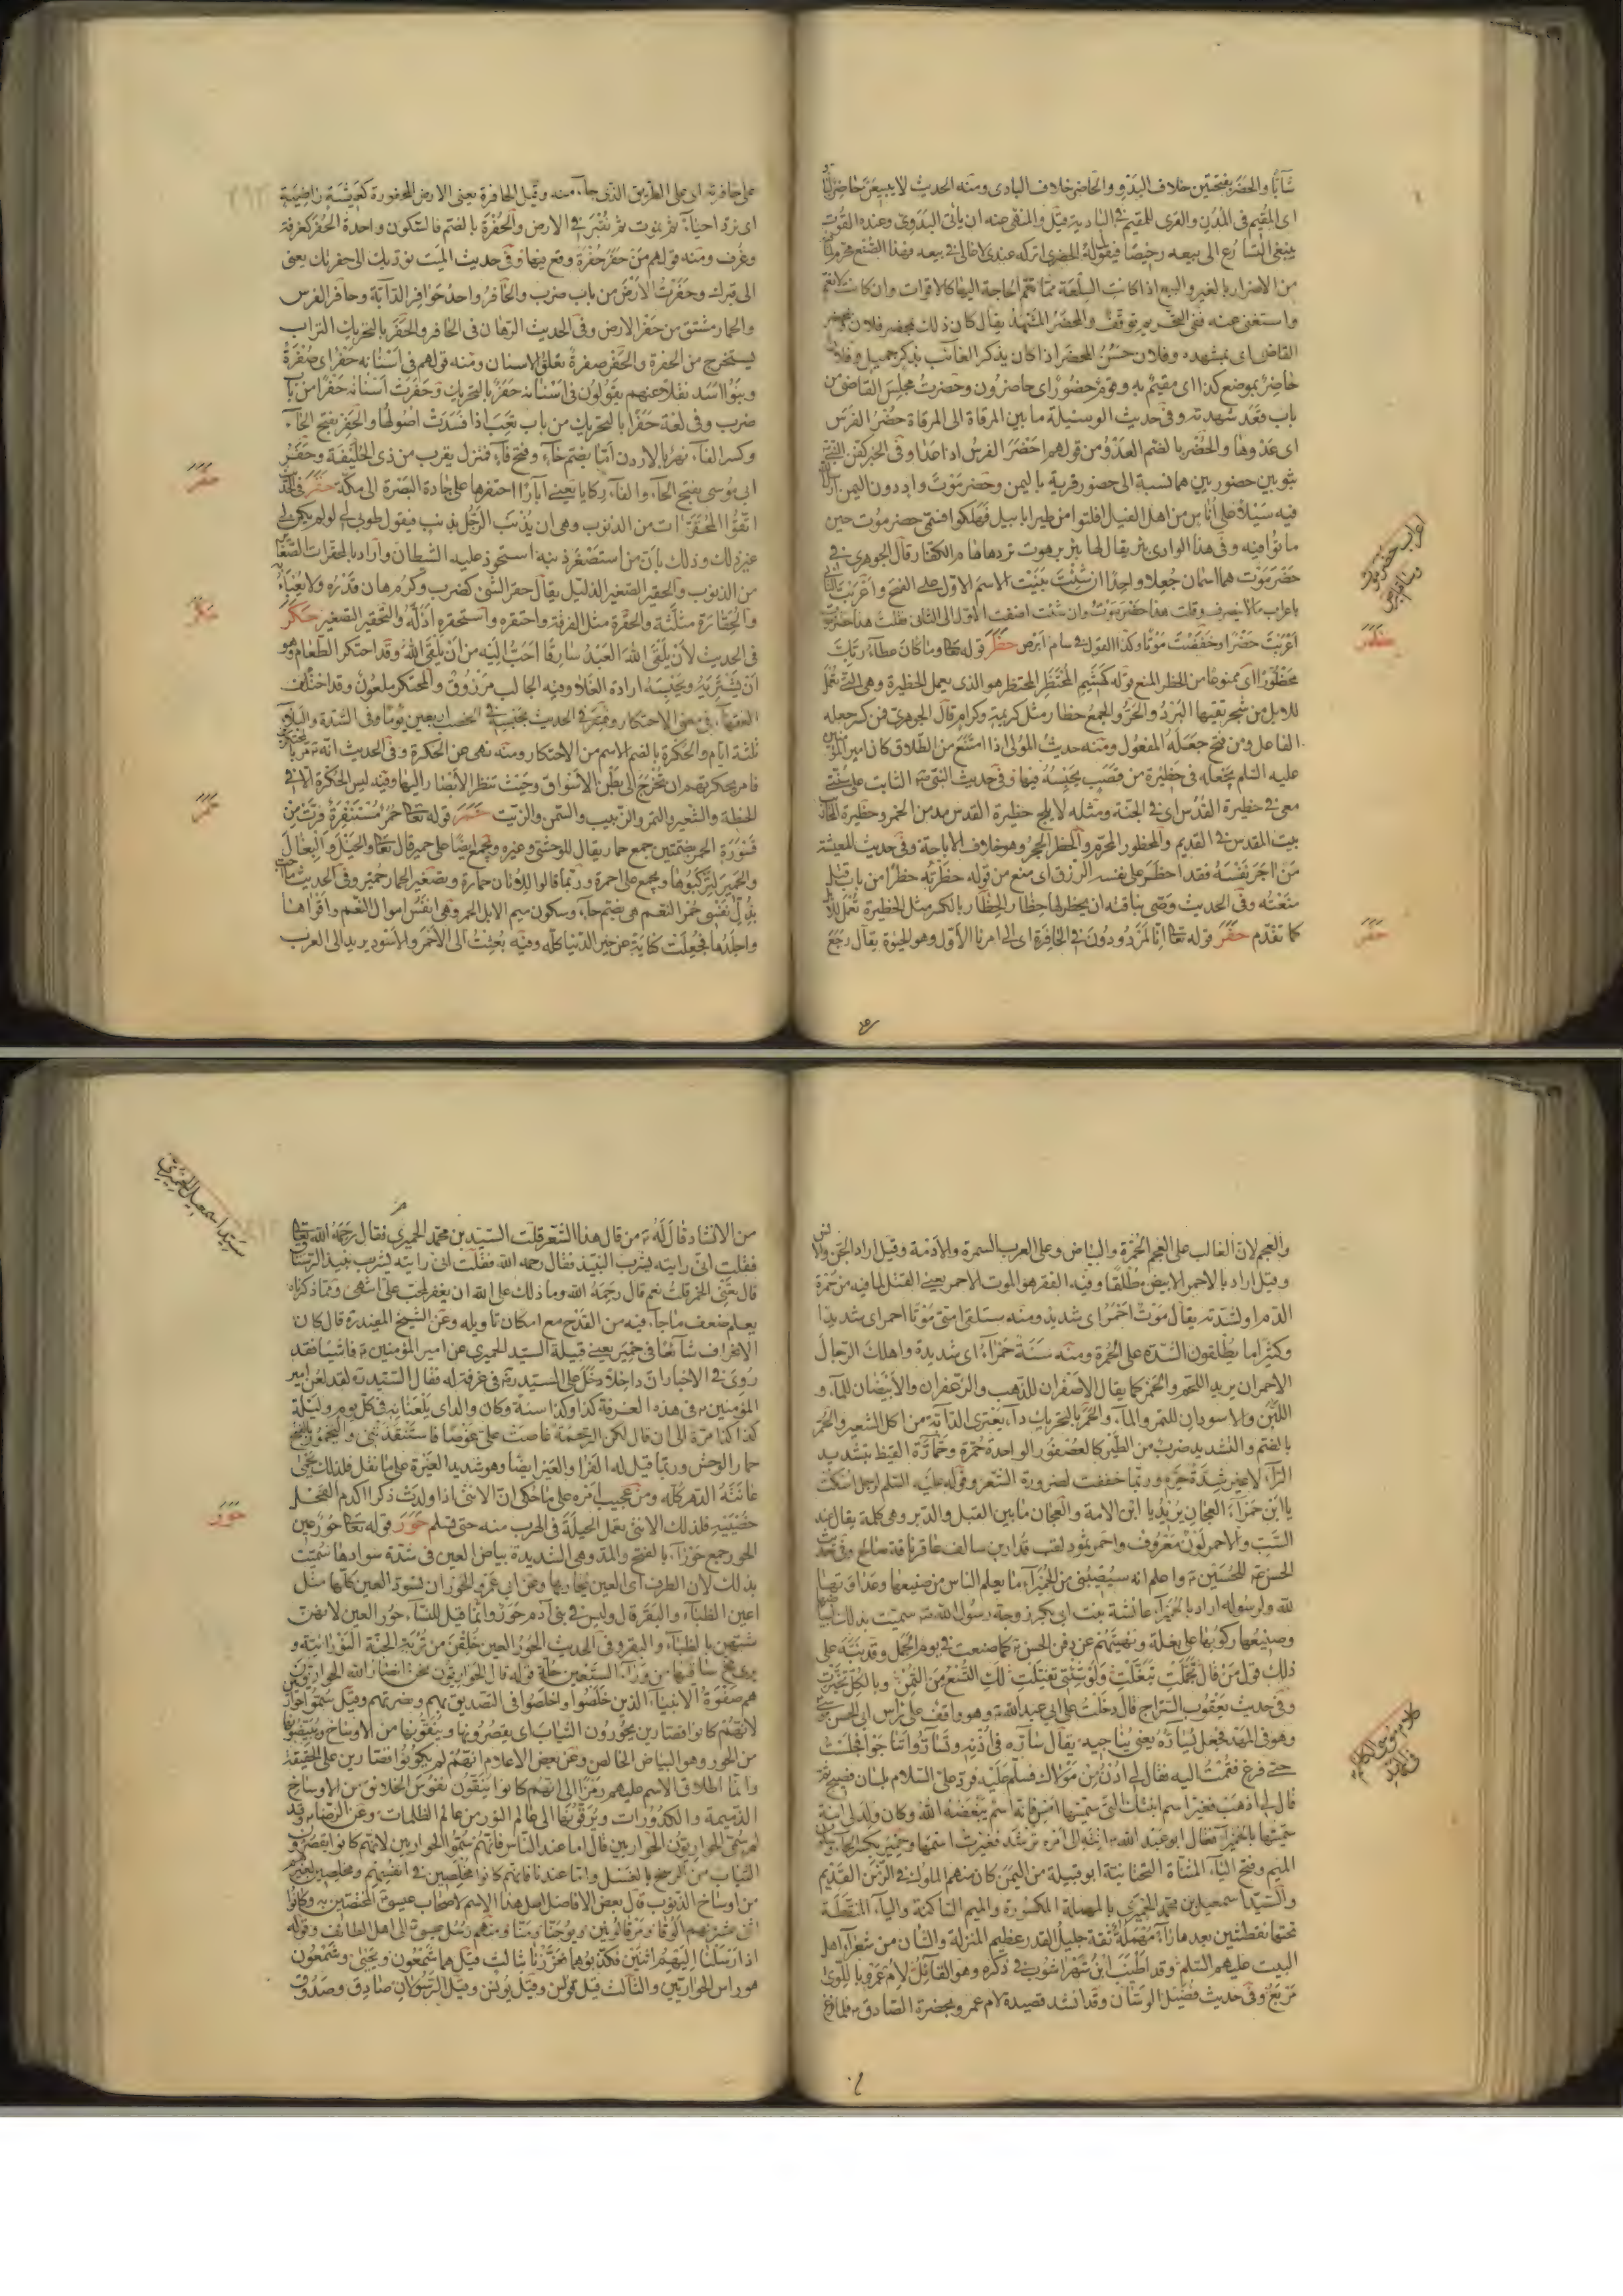 شابا والحضر بفتحتين خلاف البدو والحاضر خلاف البادى ومنه الحديث لا يبيعن حاضر لباد
اى المقيم فى المدن والقرى للمقيم فى البادية قيل والمنهى عنه ان يأتى البدوى وعنده القوت
يبغى التسارع الى بيعه رخيصا فيقول له الحضرى اتركه عندى لاغالى فى بيعه فهذا الصنع محرم لما
من الاضرار بالغير والبيع اذا كانت السلعة مما تعم الحاجة اليها كالاقوات وان كانت لا تعم
واستغنى عنه ففى التحريم توقف والمحضر المشهد يقال كان ذلك بمحضر فلان
القاضى اى بمشهده وفلان حسن المحضر اذا كان يذكر الغائب بذكر جميل وفلان
حاضر بموضع كذا اى مقيم به وقوم حضور اى حاضرون وحضرت مجلس القاضى من
باب قعد شهدته وفى حديث الوسيلة ما بين المرقاة الى المرقاة حضر الفرس
اى عدوها والحضر بالضم العدو ومن قولهم احضر الفرس اذا عدا وفى الخبر كفن النبى
بثوبين حضوريين هما نسبة الى حضور قرية باليمن وحضرموت واد دون اليمن ارسل
فيه سيلا على اناس من اهل الفيل افلتوا من طير ابابيل فهلكوا فسمى حضرموت حين
ماتوا فيه وفى هذا الوادى بئر يقال لها بئر برهوت تردها هام الكفار قال الجوهرى
حضرموت هما اسمان جعلا واحدا ان شئت بنيت الاسم الاول على الفتح واعربت الثانى
باعراب ما لا ينصرف وقلت هذا حضرموت وان شئت اضفت الاول الى الثانى قلت هذا حضرموت
اعربت حضرا وخفضت موتا وكذا القول فى سام ابرص حظر قوله تعالى وما كان عطاء ربك
محظورا اى ممنوعا من الحظر المنع قوله كهشيم المحتظر المحتظر هو الذى يعمل الحظيرة وهى التى تعمل
للابل من شجر تقيها البرد والحر والجمع حظار مثل كريمة وكرام قال الجوهرى فمن كسر جعله
الفاعل ومن فتح جعله المفعول ومنه حديث المولى اذا امتنع من الطلاق كان امير المؤمنين
عليه السلم يجعله فى حظيرة من قصب يحبسه فيها وفى حديث النبى الثابت على سنتى
معى فى حظيرة القدس اى فى الجنة ومثله لا يلج حظيرة القدس مدمن الخمر وحظيرة المحاريب
بيت المقدس فى القديم والمحظور المحرم والحظر الحجر وهو خلاف الاباحة وفى حديث المعيشة
من اجر نفسه فقد احظر على نفسه الرزق اى منع من قوله حظرته حظرا من باب قتل
منعته وفى الحديث وصى بناقته ان يحظر لها حظار الحظار بالكسر مثل الحظيرة تعمل للابل
كما تقدم حفر قوله تعالى ائنا لمردودون فى الحافرة اى الى امرنا الاول وهو الحيوة يقال رجع
اعراب حضرموت وسام ابرص
حظر
حفر
على حافرته اى على الطريق الذى جاء منه وقيل الحافرة يعنى الارض المحفورة كعيشة راضية
اى نرد احياء ثم نموت ثم نقبر فى الارض والحفرة بالضم فالسكون واحدة الحفر كغرفة
وغرف ومنه قولهم من حفر حفرة وقع فيها وفى حديث الميت نؤديك الى حفرتك يعنى
الى قبرك وحفرت الارض من باب ضرب والحافر واحد حوافر الدابة وحافر الفرس
والحمار مشتق من حفر الارض وفى الحديث الرهان فى الحافر والحفر بالتحريك التراب
يستخرج من الحفرة والحفر صفرة تعلق الاسنان ومنه قولهم فى اسنانه حفر اى صفرة
وبنو اسد نقلا عنهم يقولون فى اسنانه حفر بالتحريك وحفرت اسنانه حفرا من باب
ضرب وفى لغة حفرا بالتحريك من باب تعب اذا فسدت اصولها والحفر بفتح الحاء
وكسر الفاء نهر بالاردن اما بضم حاء وفتح فاء فمنزل بقرب من ذى الحليفة وحفر
ابى موسى بفتح الحاء والفاء ركايا يعنى آبارا احتفرها على جادة البصرة الى مكة حقر فى الحديث
اتقوا المحقرات من الذنوب وهى ان يذنب الرجل بذنب فيقول طوبى لى لو لم يكن لى
غير ذلك وذلك بان من استصغر ذنبه استحوذ عليه الشيطان واراد بالمحقرات الصغار
من الذنوب والحقير الصغير الذليل يقال حقر الشئ كضرب وكرم هان قدره ولا يعبأ به
والحقارة مثلثة والحقرة مثل الفرقة واحتقره واستحقره اذله والتحقير التصغير حكر
فى الحديث لان يلقى الله العبد سارقا احب اليه من ان يلقى الله وقد احتكر الطعام وهو
ان يشتريه ويحبسه ارادة الغلاء وفيه الجالب مرزوق والمحتكر ملعون وقد اختلف
الفقهاء فى معنى الاحتكار وفى الحديث بحبسه فى الخصب اربعين يوما وفى الشدة والبلاء
ثلثة ايام والحكرة بالضم الاسم من الاحتكار ومنه نهى عن الحكرة وفى الحديث انه مر بالمحتكرين
فامر بحكرتهم ان تخرج الى بطن الاسواق وحيث تنظر الابصار اليها وفيه ليس الحكرة الا فى
الحنطة والشعير والتمر والزبيب والسمن والزيت حمر قوله تعالى حمر مستنفرة فرت من
قسورة الحمر بضمتين جمع حمار يقال للوحشى وغيره ويجمع ايضا على حمير قال تعالى والخيل والبغال
والحمير لتركبوها ويجمع على احمرة وربما قالوا للاتان حمارة وتصغير الحمار حمير وفى الحديث ما احب
بذل نفسى حمر النعم هى بضم حاء وسكون ميم الابل الحمر وهى انفس اموال النعم واقواها
واجلدها فجعلت كناية عن خير الدنيا كله وفيه بعثت الى الاحمر والاسود يريد الى العرب
حقر
حكر
حمر
والعجم لان الغالب على العجم الحمرة والبياض وعلى العرب السمرة والادمة وقيل اراد الجن والانس
وقيل اراد بالاحمر الابيض مطلقا وفيه الفقر هو الموت الاحمر يعنى القتل لما فيه من حمرة
الدم او لشدته يقال موت احمر اى شديد ومنه ستلقى امتى موتا احمر اى شديدا
وكثيرا ما يطلقون الشدة على الحمرة ومنه سنة حمراء اى شديدة واهلك الرجال
الاحمران يريد اللحم والخمر كما يقال الاصفران للذهب والزعفران والابيضان للماء و
اللبن والاسودان للتمر والماء والحمر بالتحريك داء يعترى الدابة من اكل الشعير والحمر
بالضم والتشديد ضرب من الطير كالعصفور الواحدة حمرة وحمارة القيظ بتشديد
الراء لا غير شدة حره وربما خففت لضرورة الشعر وقوله عليه السلم لرجل اسكت
يا ابن حمراء العجان يريد يا ابن الامة والعجان ما بين القبل والدبر وهى كلمة يقال عند
السب والاحمر لون معروف واحمر ثمود لقب قدار بن سالف عاقر ناقة صالح وفى حديث
الحسن للحسين واعلم انه سيصيبنى من الحميراء ما يعلم الناس من صنيعها وعداوتها
لله ولرسوله اراد بالحميراء عائشة بنت ابى بكر زوجة رسول الله سميت بذلك لبياضها
وصنيعها ركوبها على بغلة ونهيتهم عن دفن الحسن كما صنعت فى يوم الجمل وقد نبه على
ذلك قول من قال تجملت تبغلت ولو شئتى تفيلت لك التسع من الثمن وبالكل تحكمت
وفى حديث يعقوب السراج قال دخلت على ابى عبد الله وهو واقف على راس ابى الحسن موسى
وهو فى المهد فجعل يساره يعنى يناجيه يقال ساره فى اذنه وتساروا تناجوا فجلست
حتى فرغ فقمت اليه فقال لى ادن من مولاك فسلم عليه فرد على السلام بلسان فصيح ثم
قال لى اذهب فغير اسم ابنتك التى سميتها امس فانه اسم يبغضه الله وكان ولد لى ابنة
سميتها بالحميراء فقال ابو عبد الله انته الى امره ترشد فغيرت اسمها وحمير بكسر الحاء وسكون
الميم وفتح الياء المثناة التحتانية ابو قبيلة من اليمن كان منهم الملوك فى الزمن القديم
والسيد اسمعيل بن محمد الحميرى بالمهملة المكسورة والميم الساكنة والياء المنقطة
تحتها نقطتين بعدها راء مهملة ثقة جليل القدر عظيم المنزلة والشان من شعراء اهل
البيت عليهم السلم وقد اطنب ابن شهر اشوب فى ذكره وهو القائل لام عمرو باللوى
مربع وفى حديث فضيل الرسان وقد انشد قصيدة لام عمرو بحضرة الصادق فلما فرغ
كلام موسى الكاظم فى المهد
من الانشاد قال له من قال هذا الشعر قلت السيد بن محمد الحميرى فقال رحمه الله تعالى
فقلت انى رايته يشرب النبيذ فقال رحمه الله فقلت انى رايته يشرب نبيذ الرستاق
قال يعنى الخمر قلت نعم قال رحمه الله وما ذلك على الله ان يغفر لمحب على شئ ومما ذكرناه
يعلم ضعف ما جاء فيه من القدح مع امكان تاويله وعن الشيخ المفيد قال كان
الانحراف شائعا فى حمير يعنى قبيلة السيد الحميرى عن امير المؤمنين فاشيا فقد
روى فى الاخبار ان داخلا دخل على السيد فى غرفة له فقال السيد لقد لعن امير
المؤمنين فى هذه الغرفة كذا وكذا سنة وكان والداى يلعنانه فى كل يوم وليلة
كذا كذا مرة الى ان قال لكن الرحمة غاصت على غوصا فاستنقذتنى واليحمور
حمار الوحش وربما قيل له الفرا والعير ايضا وهو شديد الغيرة على ما نقل فلذلك يحمى
عانته الدهر كله ومن عجيب امره على ما حكى ان الانثى اذا ولدت ذكرا اكدم الفحل
خصيتيه فلذلك الانثى تعمل الحيلة فى الهرب منه حتى فيسلم حور قوله تعالى حور عين
الحور جمع حوراء بالفتح والمد وهى الشديدة بياض العين فى شدة سوادها سميت
بذلك لان الطرف اى العين يحار بها وعن ابى عمرو الحور ان تسود العين كلها مثل
اعين الظباء والبقر قال وليس فى بنى آدم حور وانما قيل للنساء حور العين لانهن
شبهن بالظباء والبقر وفى الحديث الحور العين خلقن من تربة الجنة النورانية و
يرى مخ ساقيها من وراء السبعين حلة قوله قال الحواريون نحن انصار الله الحواريون
هم صفوة الانبياء الذين خلصوا واخلصوا فى التصديق بهم ونصرتهم وقيل سموا حواريين
لانهم كانوا قصارين يحورون الثياب اى يقصرونها وينقونها من الاوساخ ويبيضونها
من الحور وهو البياض الخالص وعن بعض الاعلام انهم لم يكونوا قصارين على الحقيقة
وانما اطلاق الاسم عليهم رمزا الى انهم كانوا ينقون نفوس الخلائق من الاوساخ
الذميمة والكدورات ويرقونها الى عالم النور من عالم الظلمات وعن الرضا وقد
لم سمى الحواريون الحواريين قال اما عند الناس فانهم سموا الحواريين لانهم كانوا يقصرون
الثياب من الوسخ بالغسل واما عندنا فانهم كانوا مخلصين فى انفسهم ومخلصين لغيرهم
من اوساخ الذنوب قال بعض الافاضل لعل هذا الاسم لاصحاب عيسى المختصين به وكانوا
اثنى عشر منهم لوقا ومرقا ويحنا ومتا ومنهم رسل عيسى الى اهل الطائف وقوله
اذ ارسلنا اليهم اثنين فكذبوهما فعززنا بثالث قيل هما شمعون ويحيى وشمعون
هو راس الحواريين والثالث قيل بولس وقيل يونس وقيل الرسولان صادق وصدوق
سيد اسمعيل الحميرى
حور